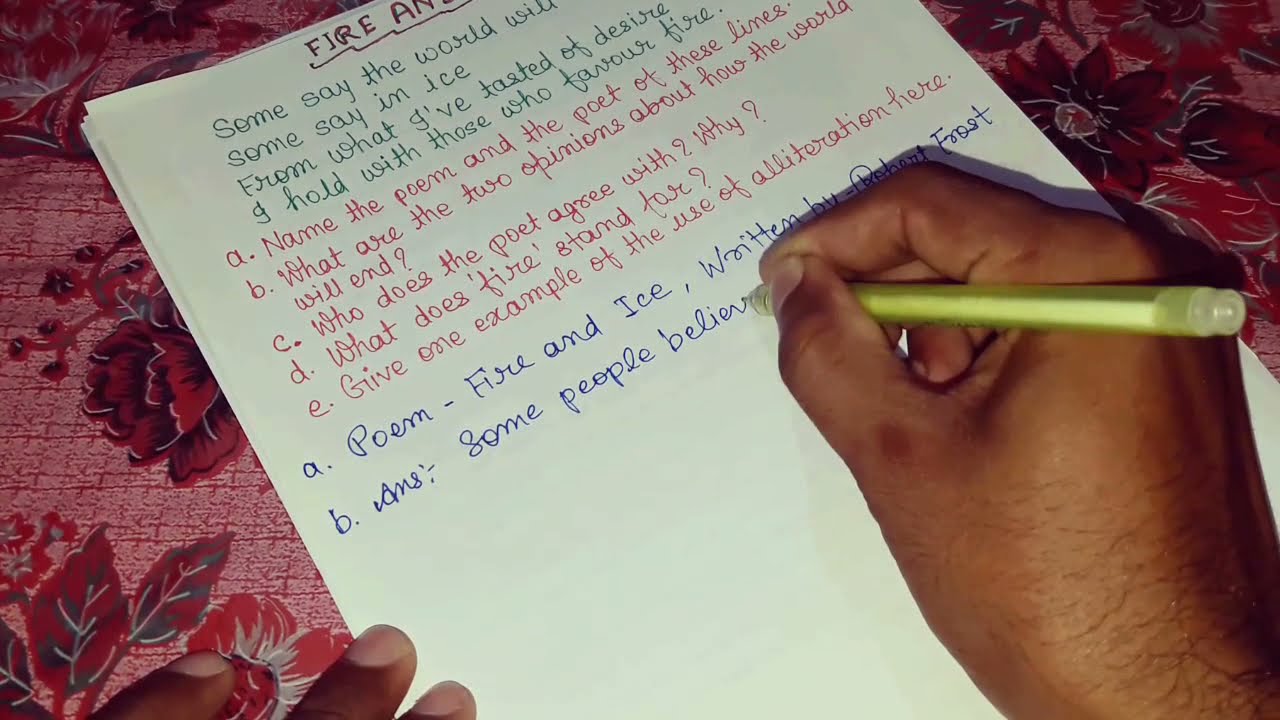 FIRE AN
Some say the world will
some say in ice
From what I've tasted of desire
I hold with those who favour fire.
a. Name the poem and the poet of these lines.
b. What are the two opinions about how the world
will end?
c. Who does the poet agree with? Why?
d. What does 'fire' stand for?
e. Give one example of the use of alliteration here.
a. Poem - Fire and Ice, Written by - Robert Frost
b. Ans:- Some people believ